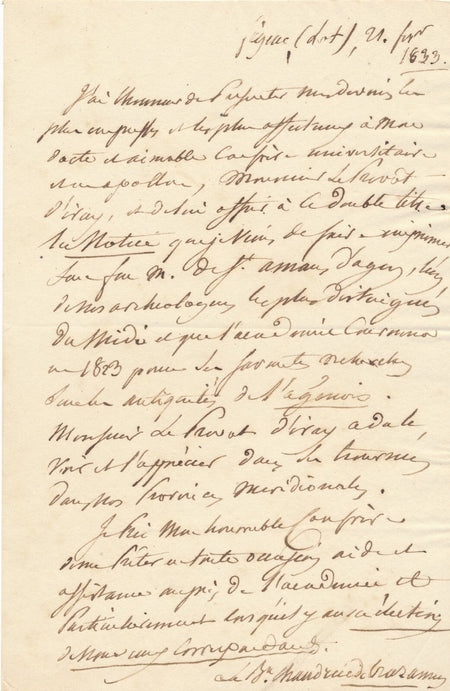 figeac (Lot), 21. fevr
1833.
J'ai l'honneur de présenter mes devoirs les
plus empressés et les plus affectueux à mon
docte et aimable Confrère universitaire
et en apollon, Monsieur Le Prevôt
d'iray, et de lui offrir à ce double titre
la Notice que je viens de faire imprimer
sur feu M. de St. amans d'agen, l'un
de nos archeologues les plus distingués
du Midi et que l'académie Couronna
en 1823 pour ses savantes recherches
sur les antiquités de l'agenois.
Monsieur Le Prevôt d'iray a dû le
voir et l'apprécier dans les tournées
dans nos Provinces Méridionales.
Je Prie Mon honorable Confrère
de me Prêter en toute occasion aide et
assistance auprès de l'academie et
Particulièrement lorsqu'il y aura élection
de Nouveaux Correspondants.
Le Bon. Chaudruc de Crazannes